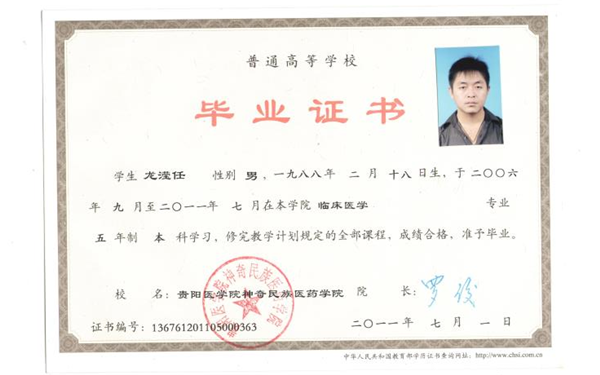 普通高等学校
毕业证书
学生 龙滢任 性别 男，一九八八年 二 月 十八日生，于二〇〇六
年 九 月至二〇一一年 七 月在本学院 临床医学 专业
五 年制 本 科学习，修完教学计划规定的全部课程，成绩合格，准予毕业。
校 名：贵阳医学院神奇民族医药学院 院 长：
贵阳医学院神奇民族医药学院
证书编号：136761201105000363 二〇一一年 七 月 一 日
中华人民共和国教育部学历证书查询网址：http://www.chsi.com.cn